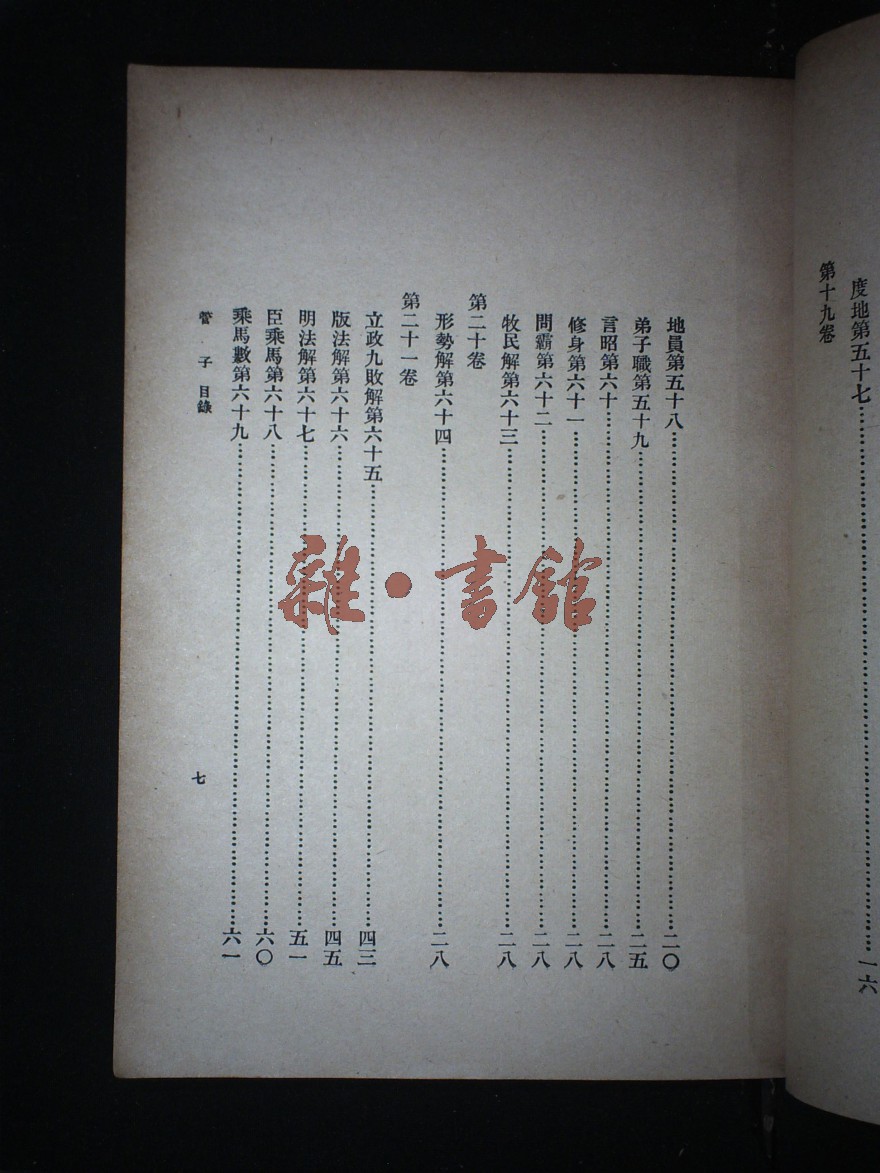 度地第五十七……一六
第十九卷
地員第五十八……二〇
弟子職第五十九……二五
言昭第六十……二八
修身第六十一……二八
問霸第六十二……二八
牧民解第六十三……二八
第二十卷
形勢解第六十四……二八
第二十一卷
立政九敗解第六十五……四三
版法解第六十六……四五
明法解第六十七……五一
臣乘馬第六十八……六〇
乘馬數第六十九……六一
管子 目錄
七
雜·書館